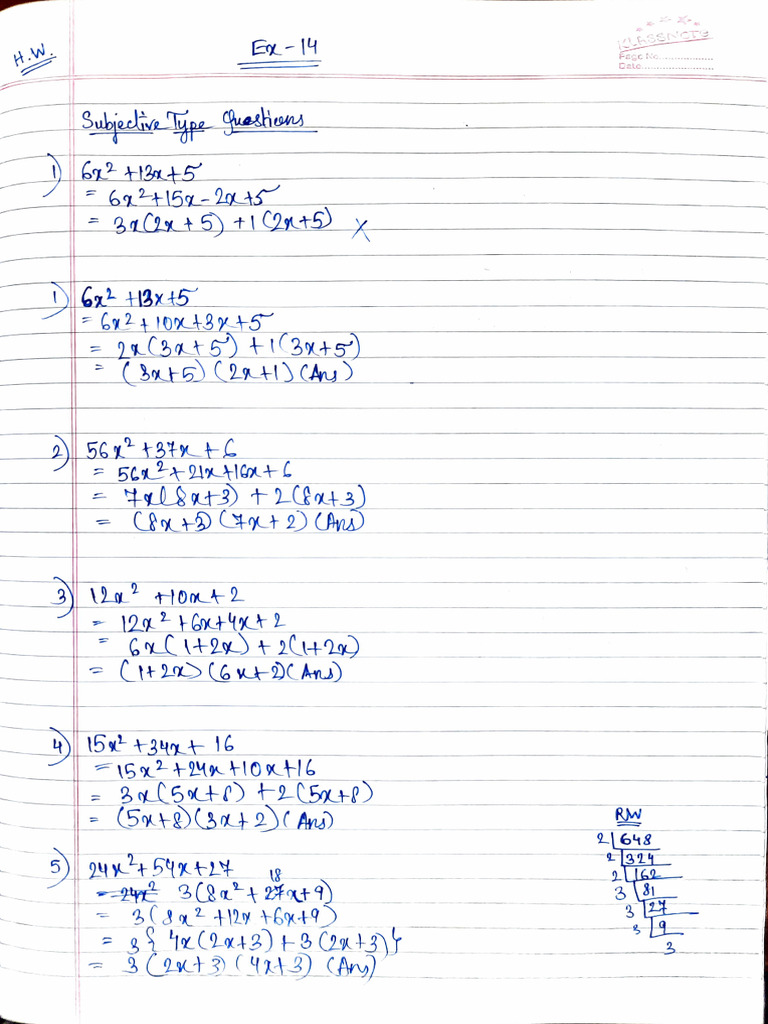 H.W.
Ex - 14
KLASSNOTE
Page No.
Date
Subjective Type Questions
1) 6x² + 13x + 5
= 6x² + 15x - 2x + 5
= 3x(2x + 5) + 1(2x + 5) X
1) 6x² + 13x + 5
= 6x² + 10x + 3x + 5
= 2x(3x + 5) + 1(3x + 5)
= (3x + 5) (2x + 1) (Ans)
2) 56x² + 37x + 6
= 56x² + 21x + 16x + 6
= 7x(8x + 3) + 2(8x + 3)
= (8x + 3) (7x + 2) (Ans)
3) 12x² + 10x + 2
= 12x² + 6x + 4x + 2
= 6x(1 + 2x) + 2(1 + 2x)
= (1 + 2x) (6x + 2) (Ans)
4) 15x² + 34x + 16
= 15x² + 24x + 10x + 16
= 3x(5x + 8) + 2(5x + 8)
= (5x + 8) (3x + 2) (Ans)
5) 24x² + 54x + 27
18
= 24x² 3(8x² + 27x + 9)
= 3(8x² + 12x + 6x + 9)
= 3{ 4x(2x + 3) + 3(2x + 3)}
= 3(2x + 3) (4x + 3) (Ans)
RW
2 | 648
2 | 324
2 | 162
3 | 81
3 | 27
3 | 9
3